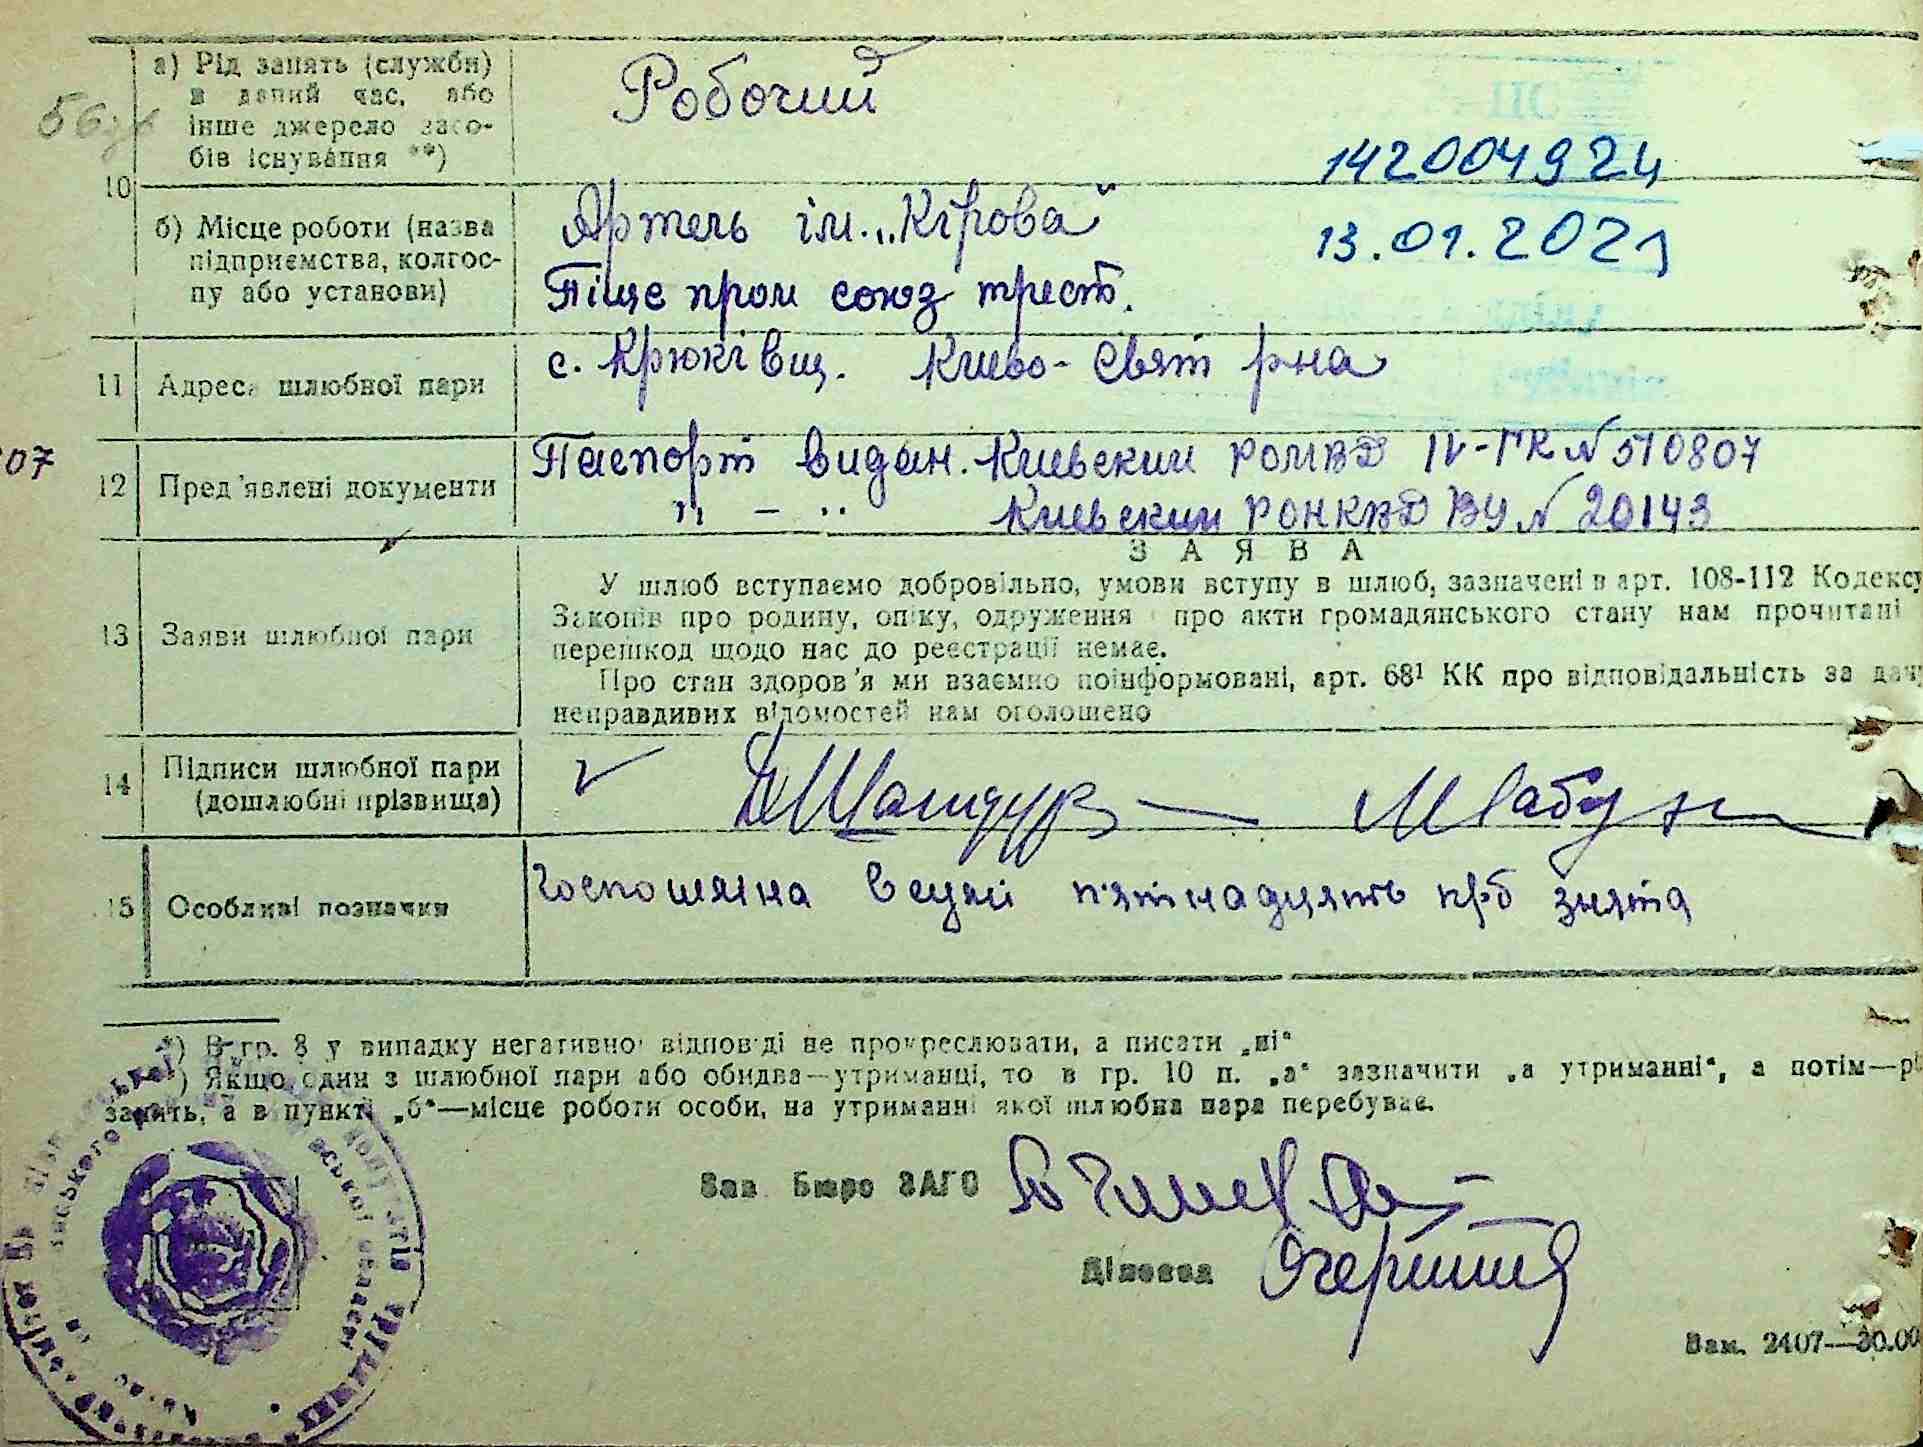 а) Рід занять (служби)
в даний час, або
інше джерело засо-
бів існування **)
Робочий
142004924
10
б) Місце роботи (назва
підприємства, колгос-
пу або установи)
Артель ім. „Кірова"
13.01.2021
Піще пром союз трест.
11 Адреса шлюбної пари
с. Крюківщ. Києво-Свят р-на
07
12 Пред'явлені документи
Паспорт видан. Киевским РОМВД IV-ГК N 510807
" - " Киевским РОНКВД ВУ N 20143
13 Заяви шлюбної пари
ЗАЯВА
У шлюб вступаємо добровільно, умови вступу в шлюб, зазначені в арт. 108-112 Кодексу
Законів про родину, опіку, одруження про акти громадянського стану нам прочитані
перешкод щодо нас до реєстрації немає.
Про стан здоров'я ми взаємно поінформовані, арт. 68¹ КК про відповідальність за дачу
неправдивих відомостей нам оголошено
14 Підписи шлюбної пари
(дошлюбні прізвища)
15 Особливі позначки
Госпошлина в сумі п'ятнадцять крб знята
*) В гр. 8 у випадку негативної відповіді не прокреслювати, а писати „ні"
) Якщо один з шлюбної пари або обидва—утриманці, то в гр. 10 п. „а" зазначити „а утриманні", а потім—рі
занять, а в пункті „б"—місце роботи особи, на утриманні якої шлюбна пара перебуває.
Зав. Бюро ЗАГС
Діловод
Зам. 2407—30.00